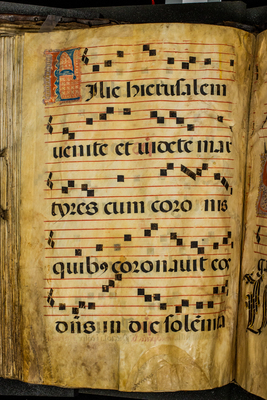 Filie hierusalem
uenite et uidete mar
tyres cum coro nis
quibꝰ coronauit eos
dn̄s in die solē̄nia